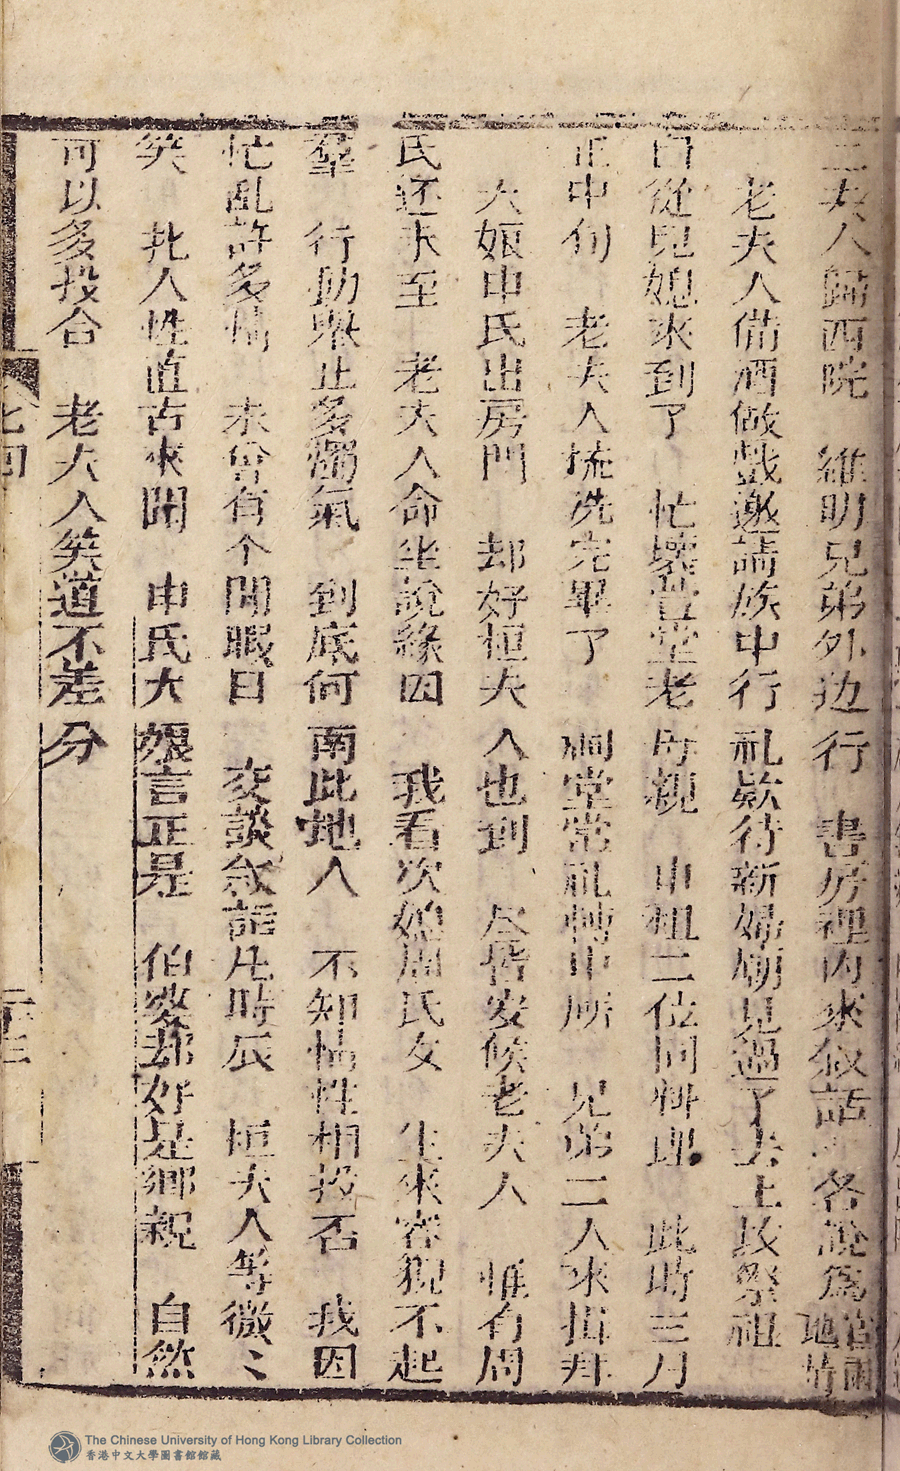 三夫人歸西院　維明兄弟外边行　書房裡内來叙話　各說爲官兩地竹
老夫人備酒做戲邀請族中行礼欵待新婦廟見過了去上坟祭祖
日從兒媳來到了　忙壞萱堂老母親　申祖二位同料理　此時三月
正中旬　老夫人梳洗完畢了　祠堂常礼轉中所　兄弟二人來揖拜
大娘申氏出房門　却好桓夫人也到　尽皆安候老夫人　惟有周
氏还未至　老夫人命坐說緣因　我看次媳周氏女　生來容貌不起
羣　行動舉止多濁氣　到底何南此地人　不知情性相投否　我因
忙乱許多情　未曾有个閒暇日　交談叙話片時辰　桓夫人等微〻
笑　北人性直古來聞　申氏大娘言正是　伯婆却好是鄉親　自然
可以多投合　老夫人笑道不差分
七回
二十三
The Chinese University of Hong Kong Library Collection
香港中文大學圖書館館藏